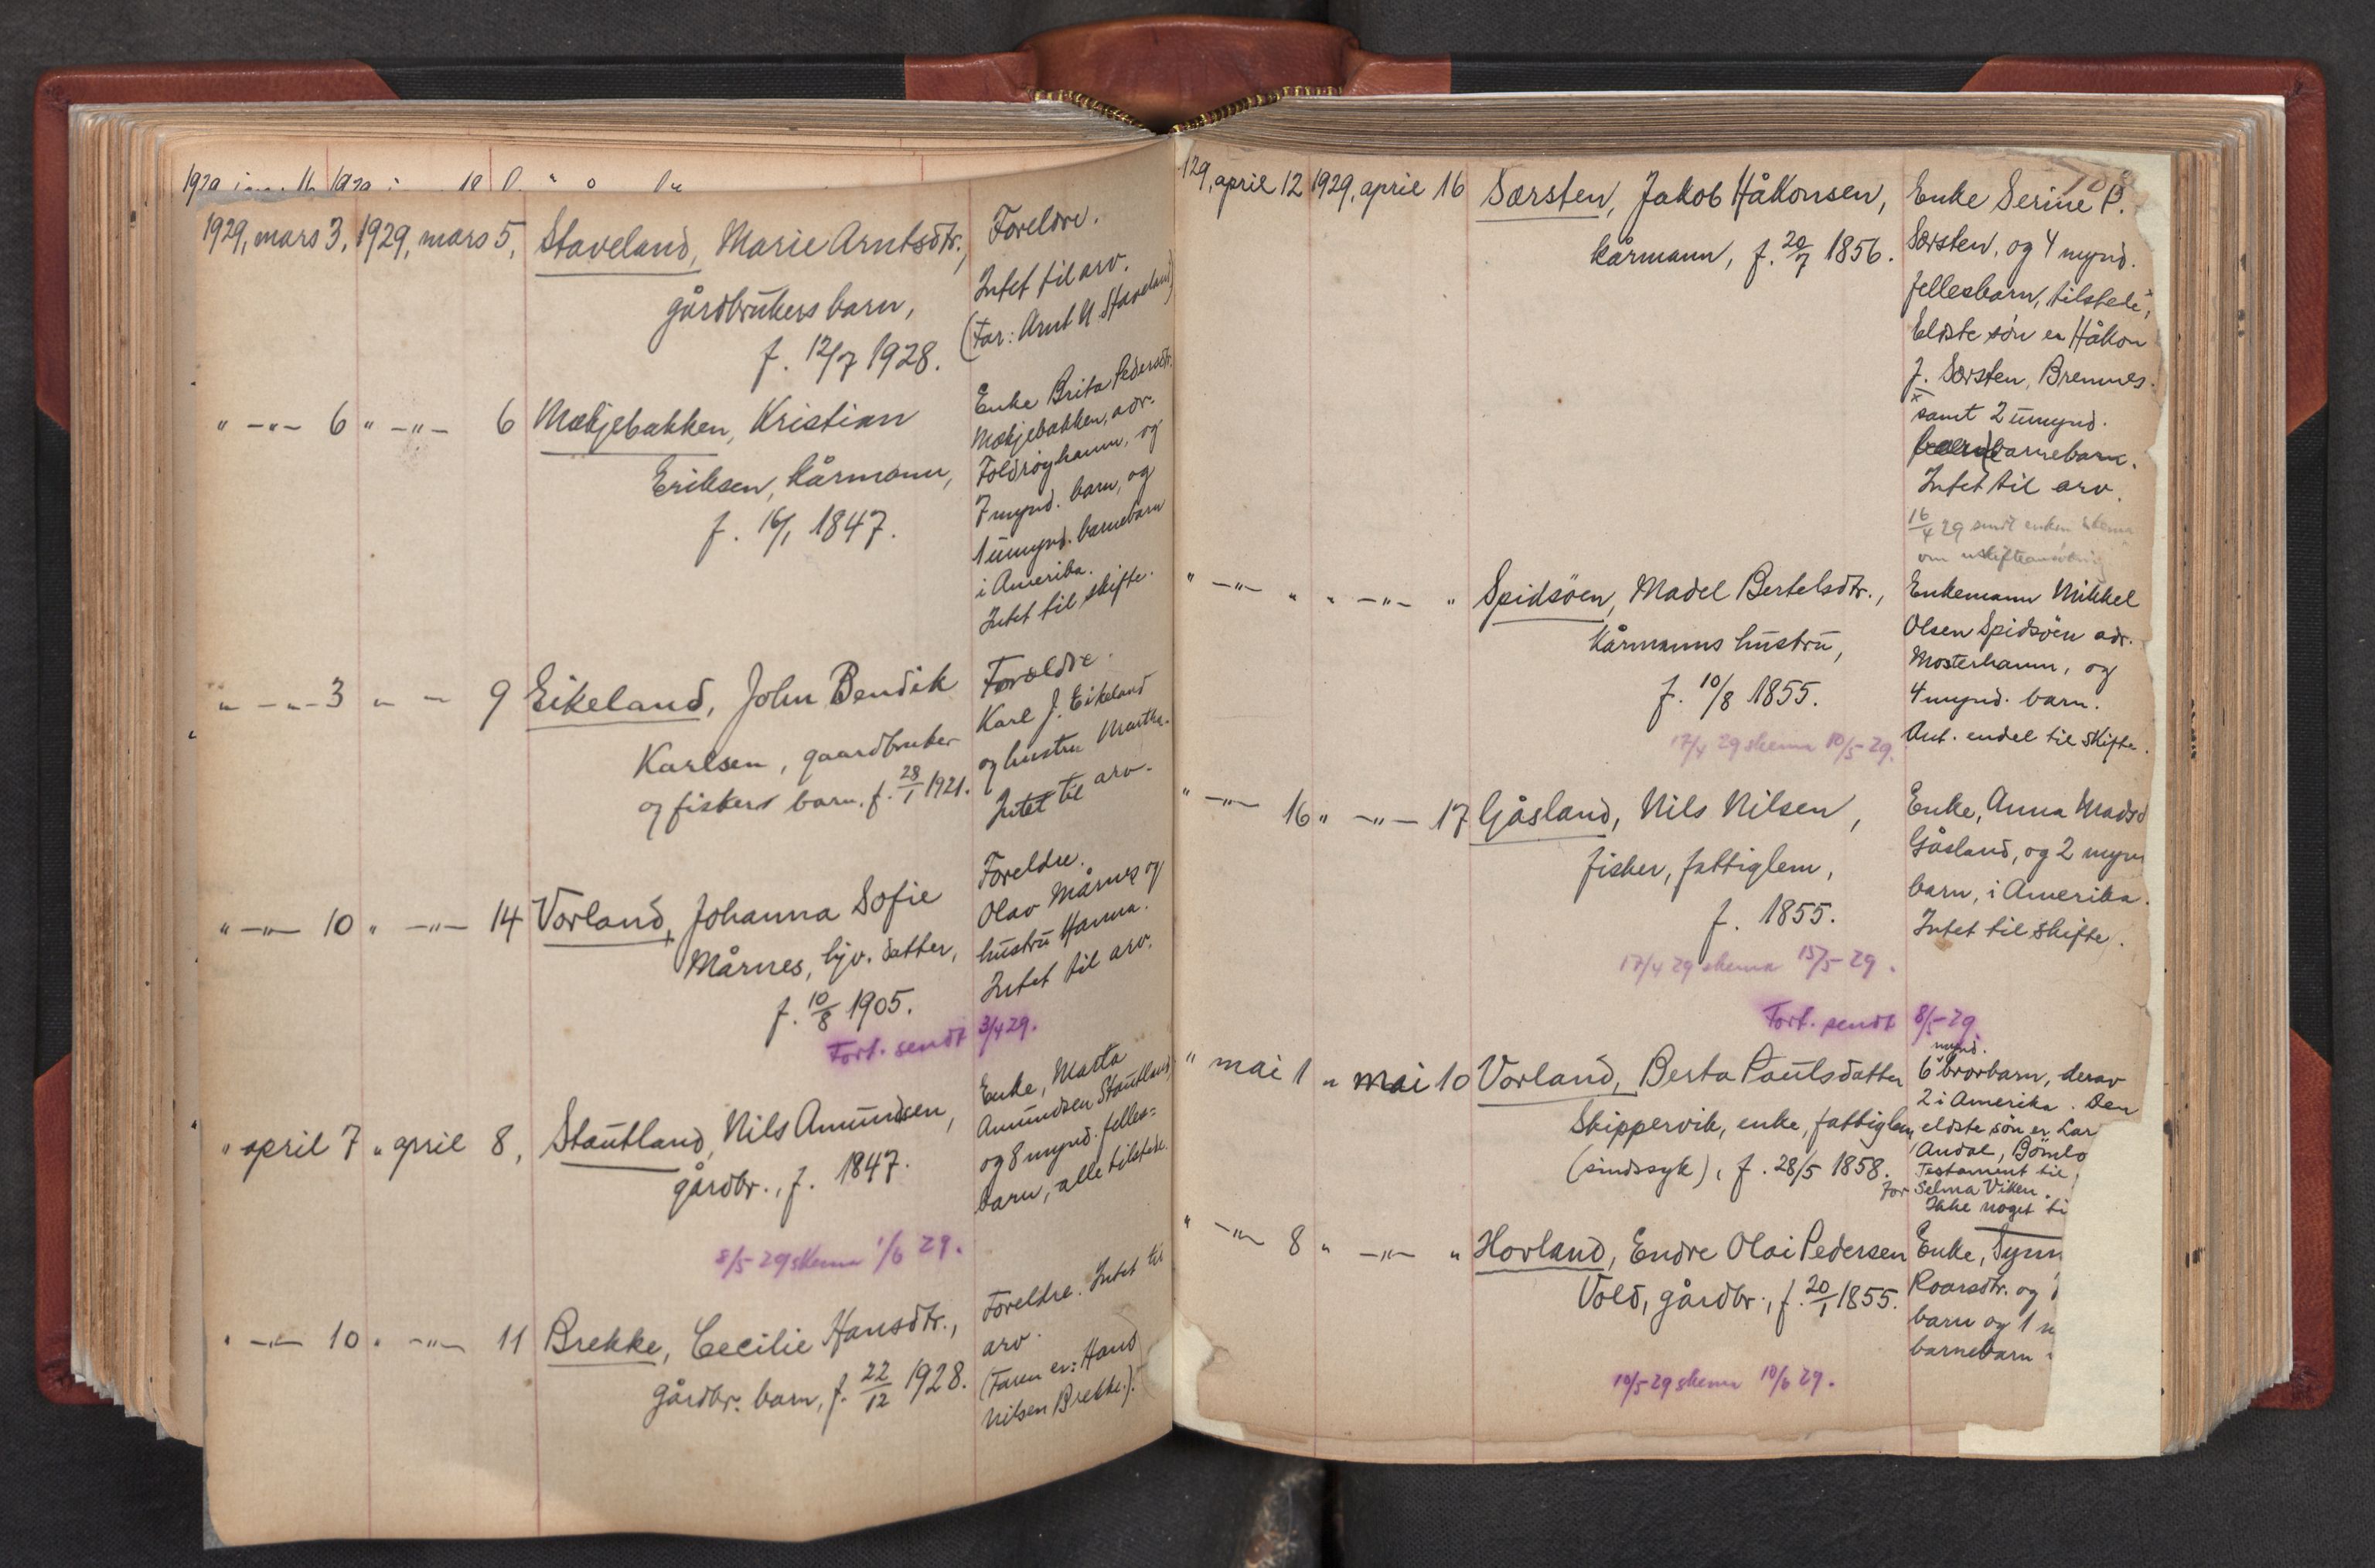 1929, mars 3, 1929, mars 5, Staveland, Marie Arntsdtr., Foreldre.
gårdbrukers barn, Intet til arv.
f. 12/7 1928. (Far: Arnt N. Staveland)
" -"- 6 " -"- 6 Mækjebakken, Kristian Enke Brita Pedersdtr.
Eriksen, kårmann, Mækjebakken, adr.
f. 16/1 1847. Foldrøyhamn, og
7 mynd. barn, og
1 umynd. barnebarn
i Amerika.
Intet til skifte.
" -"- 3 " - 9 Eikeland, John Bendik Forældre.
Karlsen, gaardbruker Karl J. Eikeland
og fiskers barn. f. 28/1 1921. og hustru Martha.
Intet til arv.
" -"- 10 " -"- 14 Vorland, Johanna Sofie Foreldre.
Mårnes, hjv. datter, Olav Mårnes og
f. 10/8 1905. hustru Hanna.
Intet til arv.
Fort. sendt 3/4 29.
" april 7 " april 8, Stautland, Nils Amundsen, Enke, Marta
gårdbr., f. 1847. Amundsen Stautland,
og 8 mynd. felles=
barn, alle tilstede.
8/5-29 skema 1/6 29.
" -"- 10 " -"- 11 Brekke, Cecilie Hansdtr., Foreldre. Intet til
gårdbr. barn, f. 22/12 1928. arv.
(Faren er: Hans
Nilsen Brekke.).
129, april 12 1929, april 16 Sørsten, Jakob Håkonsen, Enke Serine P.
kårmann, f. 20/7 1856. Sørsten, og 4 mynd.
fellesbarn, tilstede,
Eldste søn er Håkon
J. Sørsten, Bremnes.
x samt 2 umynd.
barnebarn.
Intet til arv.
16/4 29 sendt enken skema
om
" -"- " " -"- " Spidsøen, Madel Bertelsdtr., Enkemann Mikkel
kårmanns hustru, Olsen Spidsøen adr.
f. 10/8 1855. Mosterhamn, og
4 mynd. barn.
17/4 29 skema 10/5-29. Ant. endel til skifte.
" -"- 16 " -"- 17 Gåsland, Nils Nilsen, Enke, Anna Madsd
fisker, fattiglem, Gåsland, og 2 myn
f. 1855. barn, i Amerika.
Intet til skifte.
17/4 29 skema 15/5-29.
Fort. sendt 8/5-29.
mynd.
" mai 1 " mai 10 Vorland, Berta Paulsdatter 6 brorbarn, derav
Skippervik, enke, fattiglem 2 i Amerika. Den
(sindssyk), f. 28/5 1858. eldste søn er Lar
Andal, Bömlo
Testament til
for Selma Viken.
Ikke noget ti
" -"- 8 " -"- " Hovland, Endre Olai Pedersen Enke, Synn
Vold, gårdbr., f. 20/1 1855. Roarsdtr. og
barn og 1
barnebarn
10/5-29 skema 10/6 29.